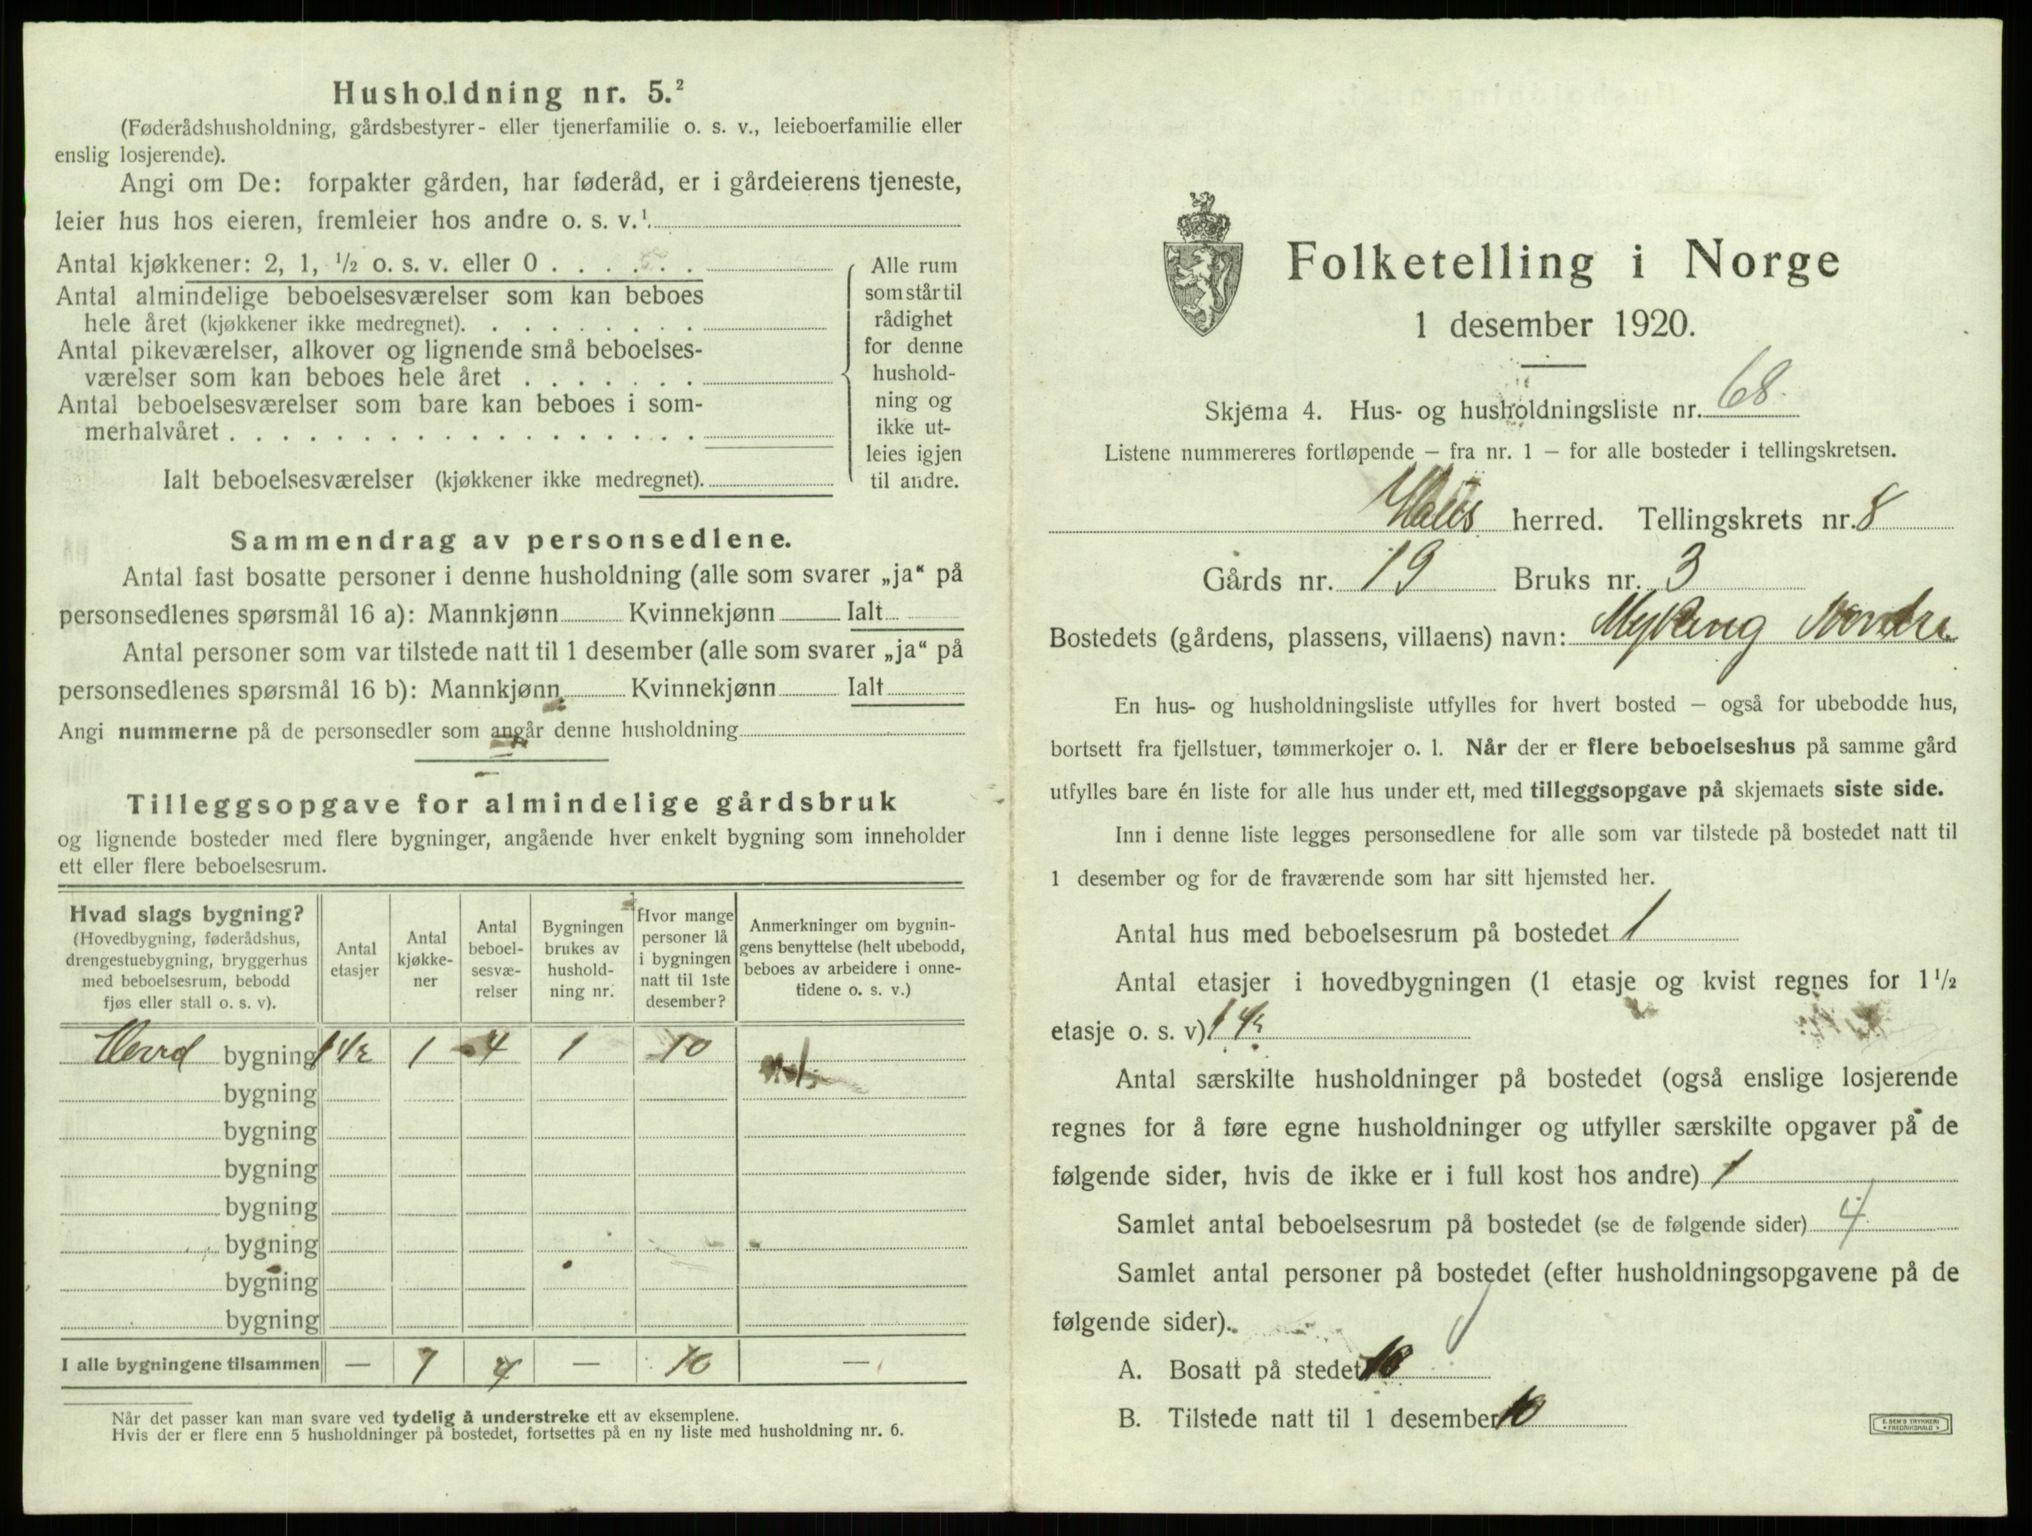 Husholdning nr. 5.²
(Føderådshusholdning, gårdsbestyrer- eller tjenerfamilie o. s. v., leieboerfamilie eller
enslig losjerende).
Angi om De: forpakter gården, har føderåd, er i gårdeierens tjeneste,
leier hus hos eieren, fremleier hos andre o. s. v.¹
Antal kjøkkener: 2, 1, ½ o. s. v. eller 0 . . . . . .
Antal almindelige beboelsesværelser som kan beboes
hele året (kjøkkener ikke medregnet). . . . . . . . .
Antal pikeværelser, alkover og lignende små beboelses-
værelser som kan beboes hele året . . . . . . .
Antal beboelsesværelser som bare kan beboes i som-
merhalvåret . . . . . . . . . . . . . . . . . .
Ialt beboelsesværelser (kjøkkener ikke medregnet).
Alle rum
som står til
rådighet
for denne
hushold-
ning og
ikke ut-
leies igjen
til andre.
Sammendrag av personsedlene.
Antal fast bosatte personer i denne husholdning (alle som svarer „ja“ på
personsedlenes spørsmål 16 a): Mannkjønn Kvinnekjønn Ialt
Antal personer som var tilstede natt til 1 desember (alle som svarer „ja“ på
personsedlenes spørsmål 16 b): Mannkjønn Kvinnekjønn Ialt
Angi nummerne på de personsedler som angår denne husholdning
Tilleggsopgave for almindelige gårdsbruk
og lignende bosteder med flere bygninger, angående hver enkelt bygning som inneholder
ett eller flere beboelsesrum.
Hvad slags bygning?
(Hovedbygning, føderådshus,
drengestuebygning, bryggerhus
med beboelsesrum, bebodd
fjøs eller stall o. s. v).
Antal
etasjer
Antal
kjøkke-
ner
Antal
beboel-
sesvæ-
relser
Bygningen
brukes av
hushold-
ning nr.
Hvor mange
personer lå
i bygningen
natt til 1ste
desember?
Anmerkninger om bygnin-
gens benyttelse (helt ubebodd,
beboes av arbeidere i onne-
tidene o. s. v.)
bygning 1 ½ 1 4 1 10
bygning
bygning
bygning
bygning
bygning
bygning
bygning
I alle bygningene tilsammen — 1 4 — 10 —
Når det passer kan man svare ved tydelig å understreke ett av eksemplene.
Hvis der er flere enn 5 husholdninger på bostedet, fortsettes på en ny liste med husholdning nr. 6.
Folketelling i Norge
1 desember 1920.
Skjema 4. Hus- og husholdningsliste nr. 68.
Listene nummereres fortløpende — fra nr. 1 — for alle bosteder i tellingskretsen.
herred. Tellingskrets nr. 8
Gårds nr. 19 Bruks nr. 3
Bostedets (gårdens, plassens, villaens) navn: Nordre
En hus- og husholdningsliste utfylles for hvert bosted — også for ubebodde hus,
bortsett fra fjellstuer, tømmerkojer o. l. Når der er flere beboelseshus på samme gård
utfylles bare én liste for alle hus under ett, med tilleggsopgave på skjemaets siste side.
Inn i denne liste legges personsedlene for alle som var tilstede på bostedet natt til
1 desember og for de fraværende som har sitt hjemsted her.
Antal hus med beboelsesrum på bostedet 1
Antal etasjer i hovedbygningen (1 etasje og kvist regnes for 1 ½
etasje o. s. v) 1 ½
Antal særskilte husholdninger på bostedet (også enslige losjerende
regnes for å føre egne husholdninger og utfyller særskilte opgaver på de
følgende sider, hvis de ikke er i full kost hos andre) 1
Samlet antal beboelsesrum på bostedet (se de følgende sider) 4
Samlet antal personer på bostedet (efter husholdningsopgavene på de
følgende sider).
A. Bosatt på stedet 10
B. Tilstede natt til 1 desember 10
E. SEM'S TRYKKERI
FREDRIKSHALD